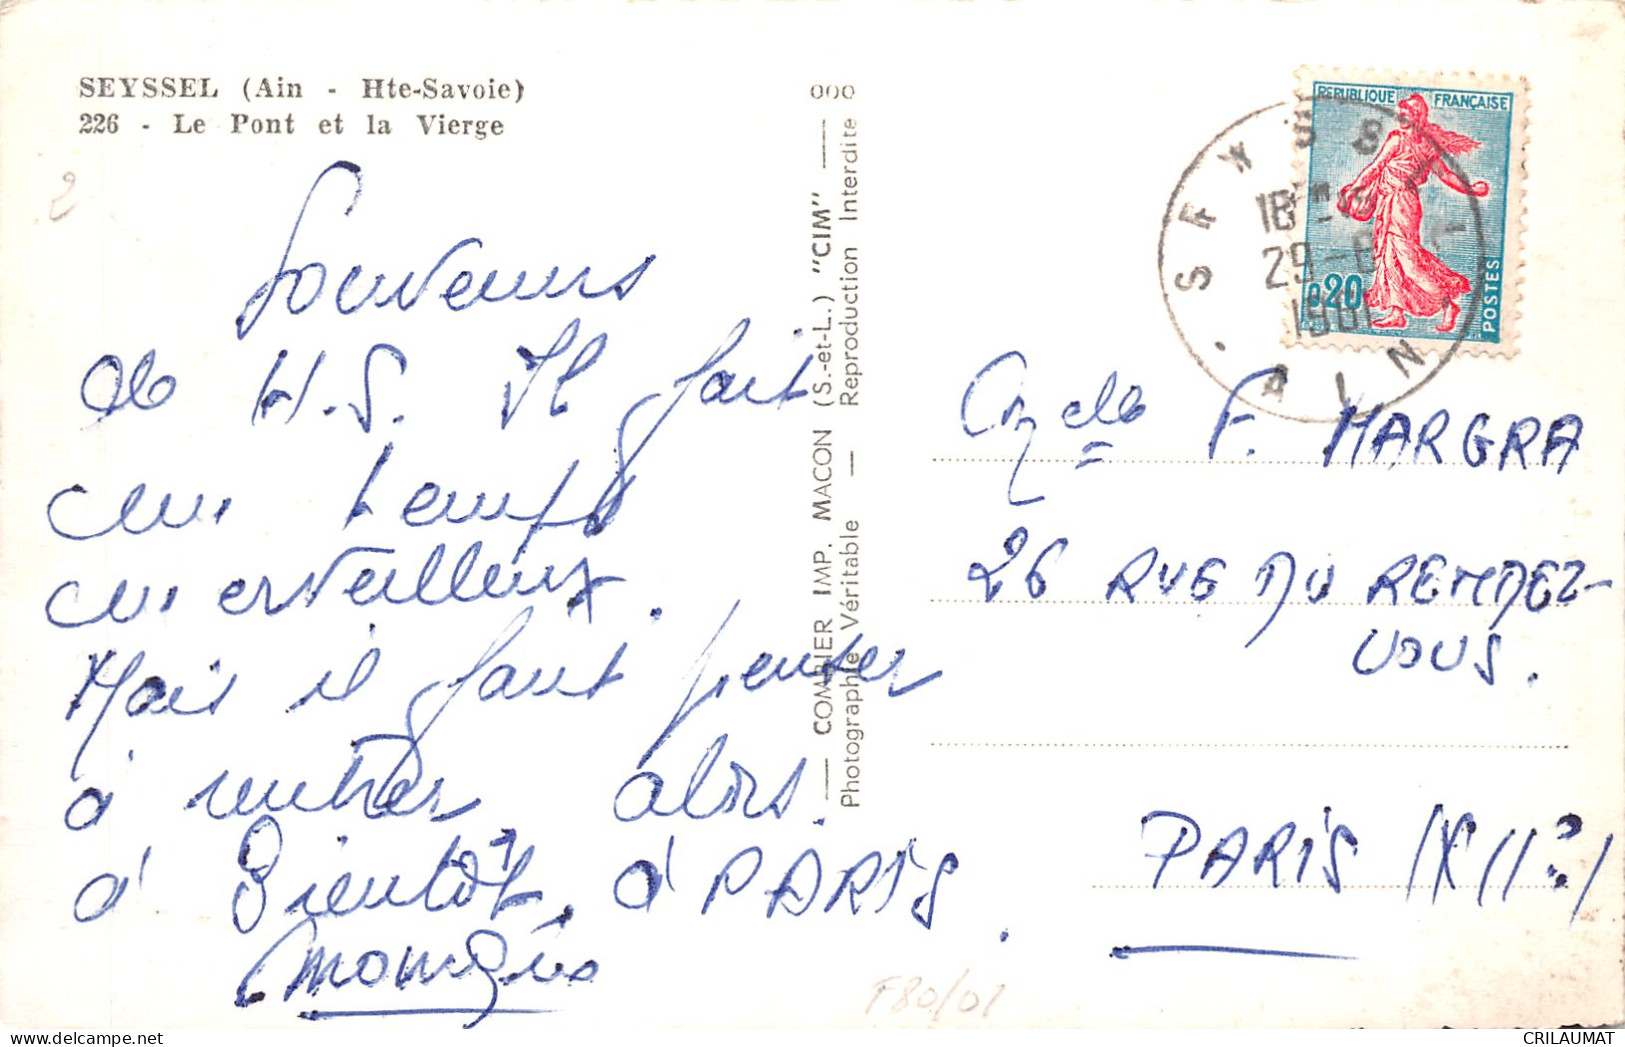 SEYSSEL (Ain - Hte-Savoie)
226 - Le Pont et la Vierge
2
Souvenirs
de H.S. Il fait
un temps
merveilleux.
Mais il faut penser
à rentrer alors.
à Bientôt, à PARIS.
000
COMBIER IMP. MACON (S.-et-L.) "CIM"
Photographie Véritable — Reproduction Interdite
REPUBLIQUE FRANÇAISE
0,20
POSTES
SEYSSEL
18H
29-8
1961
AIN
F. MARGRA
26 RUE DU RENDEZ-
VOUS.
PARIS (XIIe)
F80/01
CRILAUMAT